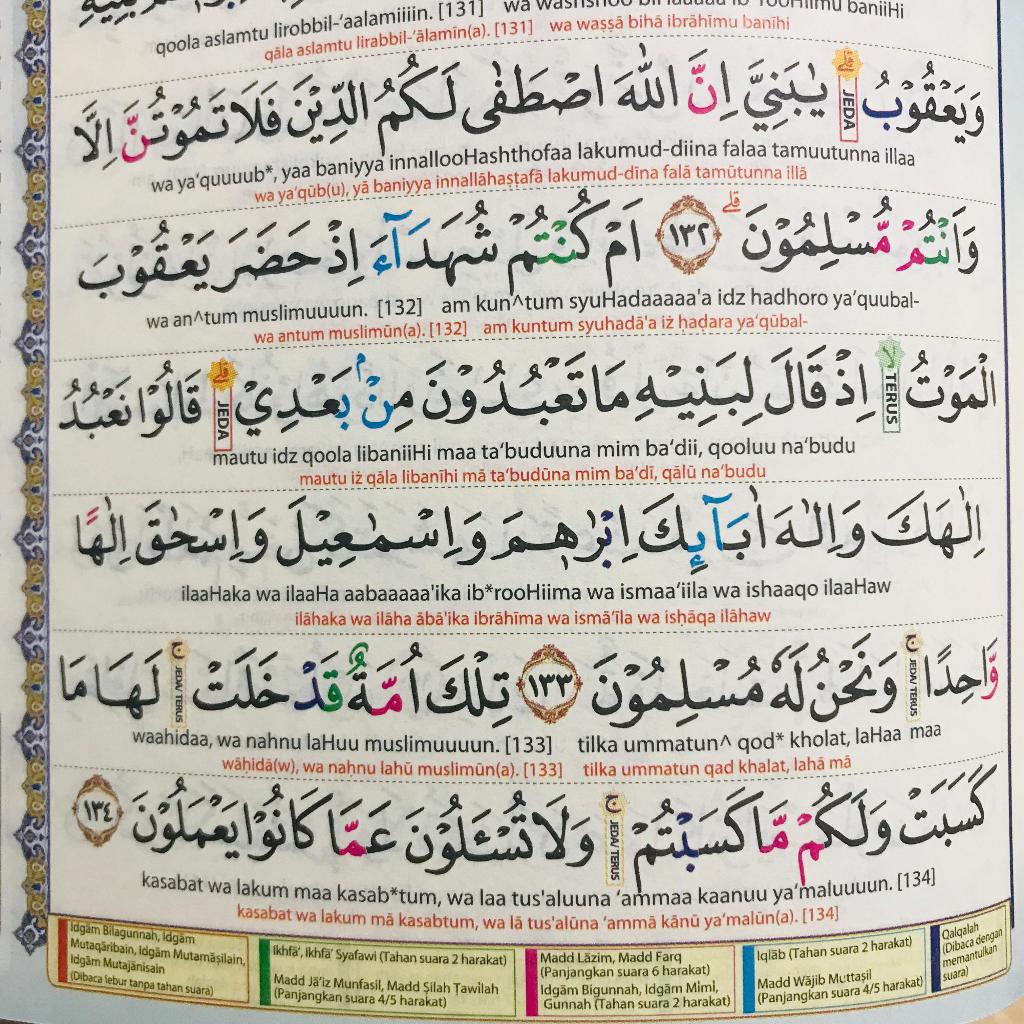 qoola aslamtu lirobbil-‘aalamiiiin. [131]
qāla aslamtu lirabbil-‘ālamīn(a). [131] wa waṣṣā bihā ibrāhīmu banīhi
وَيَعْقُوْبُۗ يٰبَنِيَّ اِنَّ اللّٰهَ اصْطَفٰى لَكُمُ الدِّيْنَ فَلَا تَمُوْتُنَّ اِلَّا
JEDA
wa ya‘quuuub*, yaa baniyya innallooHashthofaa lakumud-diina falaa tamuutunna illaa
wa ya‘qūb(u), yā baniyya innallāhaṣṭafā lakumud-dīna falā tamūtunna illā
وَاَنْتُمْ مُّسْلِمُوْنَۗ ١٣٢ اَمْ كُنْتُمْ شُهَدَاۤءَ اِذْ حَضَرَ يَعْقُوْبَ
wa an^tum muslimuuuun. [132] am kun^tum syuHadaaaaa'a idz hadhoro ya‘quubal-
wa antum muslimūn(a). [132] am kuntum syuhadā'a iż ḥaḍara ya‘qūbal-
الْمَوْتُۙ اِذْ قَالَ لِبَنِيْهِ مَا تَعْبُدُوْنَ مِنْۢ بَعْدِيْۗ قَالُوْا نَعْبُدُ
TERUS JEDA
mautu idz qoola libaniiHi maa ta‘buduuna mim ba‘dii, qooluu na‘budu
mautu iż qāla libanīhi mā ta‘budūna mim ba‘dī, qālū na‘budu
اِلٰهَكَ وَاِلٰهَ اٰبَاۤىِٕكَ اِبْرٰهٖمَ وَاِسْمٰعِيْلَ وَاِسْحٰقَ اِلٰهًا
ilaaHaka wa ilaaHa aabaaaaa'ika ib*rooHiima wa ismaa‘iila wa ishaaqo ilaaHaw
ilāhaka wa ilāha ābā'ika ibrāhīma wa ismā‘īla wa isḥāqa ilāhaw
وَّاحِدًاۚ وَنَحْنُ لَهٗ مُسْلِمُوْنَ ١٣٣ تِلْكَ اُمَّةٌ قَدْ خَلَتْۚ لَهَا مَا
JEDA/ TERUS JEDA/ TERUS
waahidaa, wa nahnu laHuu muslimuuuun. [133] tilka ummatun^ qod* kholat, laHaa maa
wāḥidā(w), wa nahnu lahū muslimūn(a). [133] tilka ummatun qad khalat, lahā mā
كَسَبَتْ وَلَكُمْ مَّا كَسَبْتُمْۚ وَلَا تُسْـَٔلُوْنَ عَمَّا كَانُوْا يَعْمَلُوْنَ ١٣٤
JEDA/ TERUS
kasabat wa lakum maa kasab*tum, wa laa tus'aluuna ‘ammaa kaanuu ya‘maluuuun. [134]
kasabat wa lakum mā kasabtum, wa lā tus'alūna ‘ammā kānū ya‘malūn(a). [134]
Idgām Bilagunnah, Idgām
Mutaqāribain, Idgām Mutamāṣilain,
Idgām Mutajānisain
(Dibaca lebur tanpa tahan suara)
Ikhfā', Ikhfā' Syafawi (Tahan suara 2 harakat)
Madd Jā'iz Munfasil, Madd Ṣilah Ṭawīlah
(Panjangkan suara 4/5 harakat)
Madd Lāzim, Madd Farq
(Panjangkan suara 6 harakat)
Idgām Bigunnah, Idgām Mīmī,
Gunnah (Tahan suara 2 harakat)
Iqlāb (Tahan suara 2 harakat)
Madd Wājib Muttaṣil
(Panjangkan suara 4/5 harakat)
Qalqalah
(Dibaca dengan
memantulkan
suara)